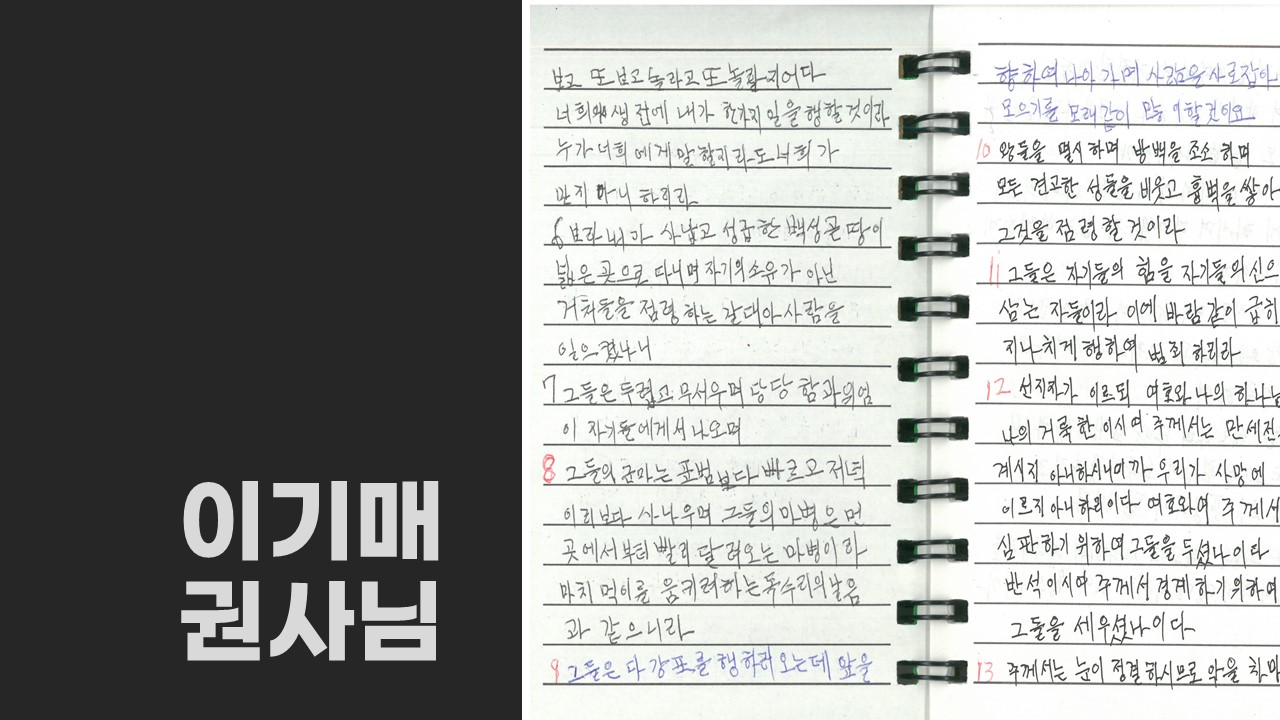 이기매
권사님
보고 또 보고 놀라고 또 놀랄지어다
너희의 생전에 내가 한가지 일을 행할 것이라
누가 너희에게 말할지라도 너희가
믿지 아니하리라
6 보라 내가 사납고 성급한 백성 곧 땅이
넓은 곳으로 다니며 자기의 소유가 아닌
거처들을 점령하는 갈대아 사람을
일으켰나니
7 그들은 두렵고 무서우며 당당함과 위엄
이 자기들에게서 나오며
8 그들의 군마는 표범보다 빠르고 저녁
이리보다 사나우며 그들의 마병은 먼
곳에서부터 빨리 달려오는 마병이라
마치 먹이를 움키려하는 독수리의 날음
과 같으니라
9 그들은 다 강포를 행하러 오는데 앞을
향하여 나아가며 사람을 사로잡아
모으기를 모래같이 많이 할 것이요
10 왕들을 멸시하며 방백을 조소하며
모든 견고한 성들을 비웃고 흉벽을 쌓아
그것을 점령할 것이라
11 그들은 자기들의 힘을 자기들의 신으
삼는 자들이라 이에 바람같이 급히
지나치게 행하여 범죄하리라
12 선지자가 이르되 여호와 나의 하나님
나의 거룩한 이시여 주께서는 만세전
계시지 아니하시니이까 우리가 사망에
이르지 아니하리이다 여호와여 주께서
심판하기 위하여 그들을 두셨나이다
반석이시여 주께서 경계하기 위하여
그들을 세우셨나이다
13 주께서는 눈이 정결하시므로 악을 차마